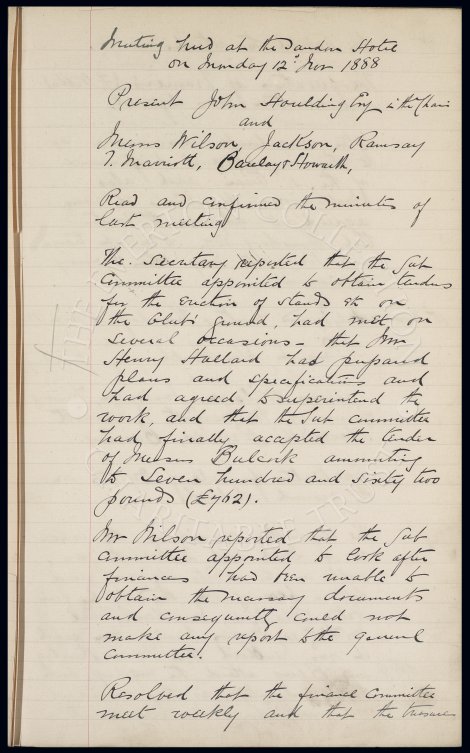 Meeting held at the Sandon Hotel
on Monday 12th Nov 1888
Present John Houlding Esq in the Chair
and
Messrs Wilson, Jackson, Ramsay
T. Marriott, Barclay & Howarth,
Read and confirmed the minutes of
last meeting
The Secretary reported that the Sub
Committee appointed to obtain tenders
for the erection of stands etc on
the Clubs ground, had met on
several occasions - that Mr
Henry Hallard had prepared
plans and specifications and
had agreed to superintend the
work, and that the Sub committee
had finally accepted the tender
of Messrs Bulcock amounting
to Seven hundred and sixty two
pounds (£762).
Mr Wilson reported that the Sub
Committee appointed to look after
finances had been unable to
obtain the necessary documents
and consequently could not
make any report to the general
Committee.
Resolved that the finance Committee
meet weekly and that the treasurer
THE EVERTON COLLECTION
CHARITABLE TRUST